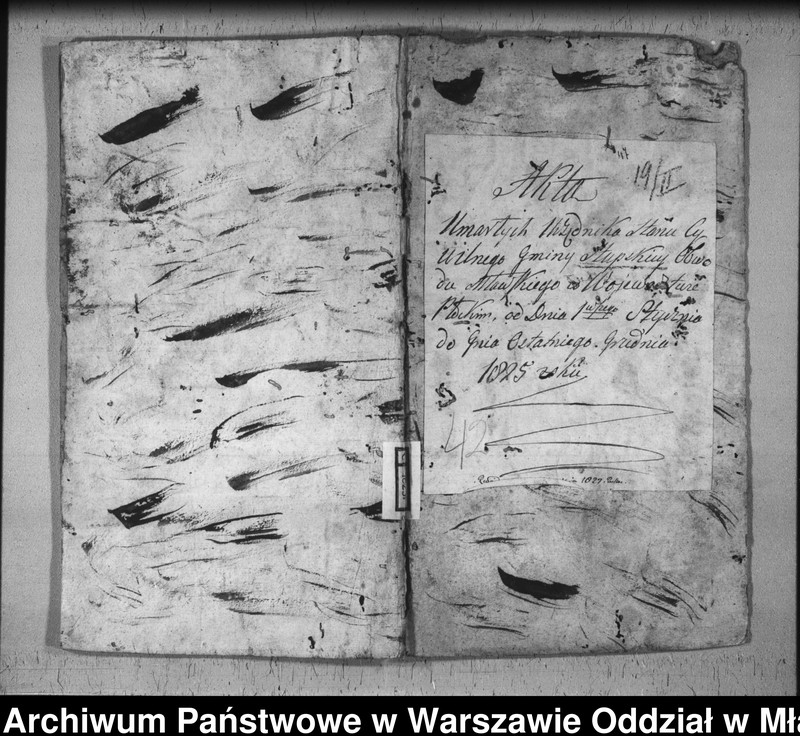 19/II
Akta
Umarłych Urzędnika Stanu Cy
wilnego Gminy Słupskiey Obwo
du Mławskiego w Wojewodztwie
Płockim, od Dnia 1 Stycznia
do Dnia Ostatniego Grudnia
1825 roku
42
1827
Archiwum Państwowe w Warszawie Oddział w Mła